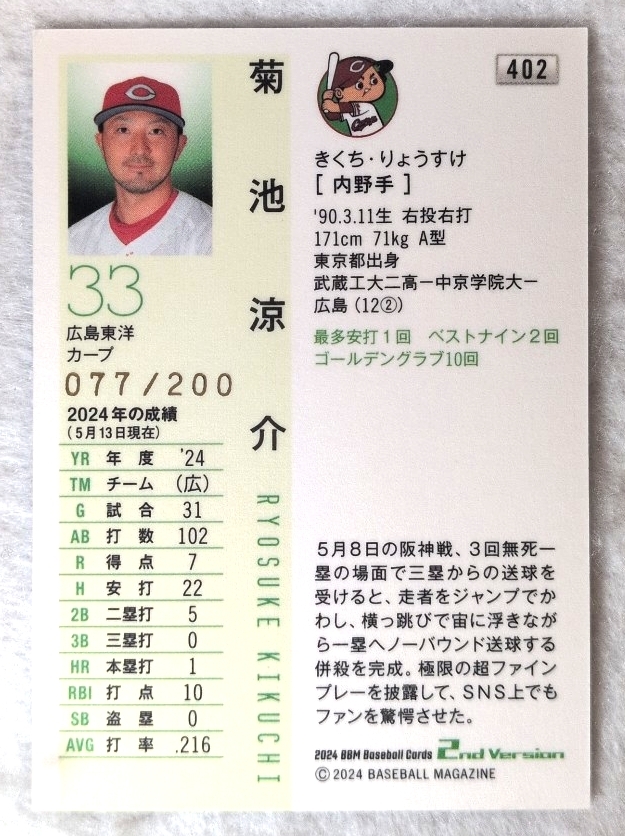 C
33
広島東洋
カープ
077/200
2024年の成績
(5月13日現在)
YR 年度 '24
TM チーム (広)
G 試合 31
AB 打数 102
R 得点 7
H 安打 22
2B 二塁打 5
3B 三塁打 0
HR 本塁打 1
RBI 打点 10
SB 盗塁 0
AVG 打率 .216
菊池涼介
RYOSUKE KIKUCHI
402
C
Carp
きくち・りょうすけ
[内野手]
'90.3.11生 右投右打
171cm 71kg A型
東京都出身
武蔵工大二高ー中京学院大ー
広島(12②)
最多安打1回 ベストナイン2回
ゴールデングラブ10回
5月8日の阪神戦、3回無死一
塁の場面で三塁からの送球を
受けると、走者をジャンプでか
わし、横っ跳びで宙に浮きなが
ら一塁へノーバウンド送球する
併殺を完成。極限の超ファイン
プレーを披露して、SNS上でも
ファンを驚愕させた。
2024 BBM Baseball Cards 2nd Version
©2024 BASEBALL MAGAZINE